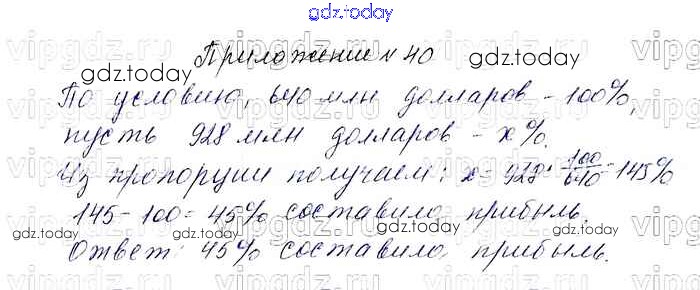 gdz.today
Приложение № 40
gdz.today
gdz.today
По условию, 640 млн долларов - 100%,
пусть 928 млн долларов - x%.
Из пропорции получаем: x = 928 · 100/640 = 145%
145 - 100 = 45% составила прибыль.
Ответ: 45% составила прибыль.
gdz.today
gdz.today